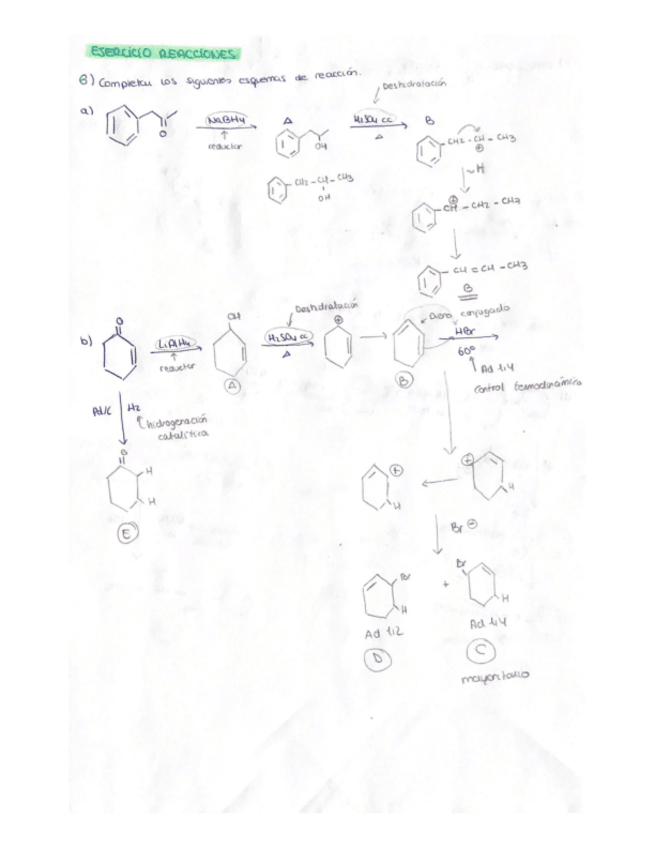 EJERCICIO REACCIONES
6) Completar los siguientes esquemas de reacción.
Deshidratación
a)
O
NaBH4
reductor
A
OH
H2SO4 cc
Δ
B
CH2-CH-CH3
⊕
CH2-CH-CH3
OH
~H
⊕
CH-CH2-CH3
CH=CH-CH3
B
b)
O
LiAlH4
reductor
OH
A
Deshidratación
H2SO4 cc
Δ
⊕
B
Dieno conjugado
HBr
60º
Ad 1,4
Control termodinámico
Pd/C
H2
hidrogenación
catalítica
H
H
E
⊕
H
⊕
H
Br⊖
Br
H
+
Br
H
Ad 1,2
D
Ad 1,4
C
mayoritario